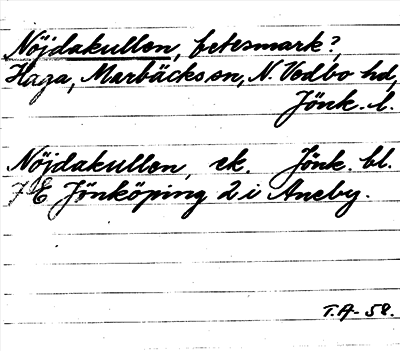 Nöjdakullen, betesmark?,
Haga, Marbäcks sn, N. Vedbo hd,
Jönk. l.
Nöjdakullen, ek. Jönk. bl.
7 E Jönköping 2 i Aneby.
T.A-58.